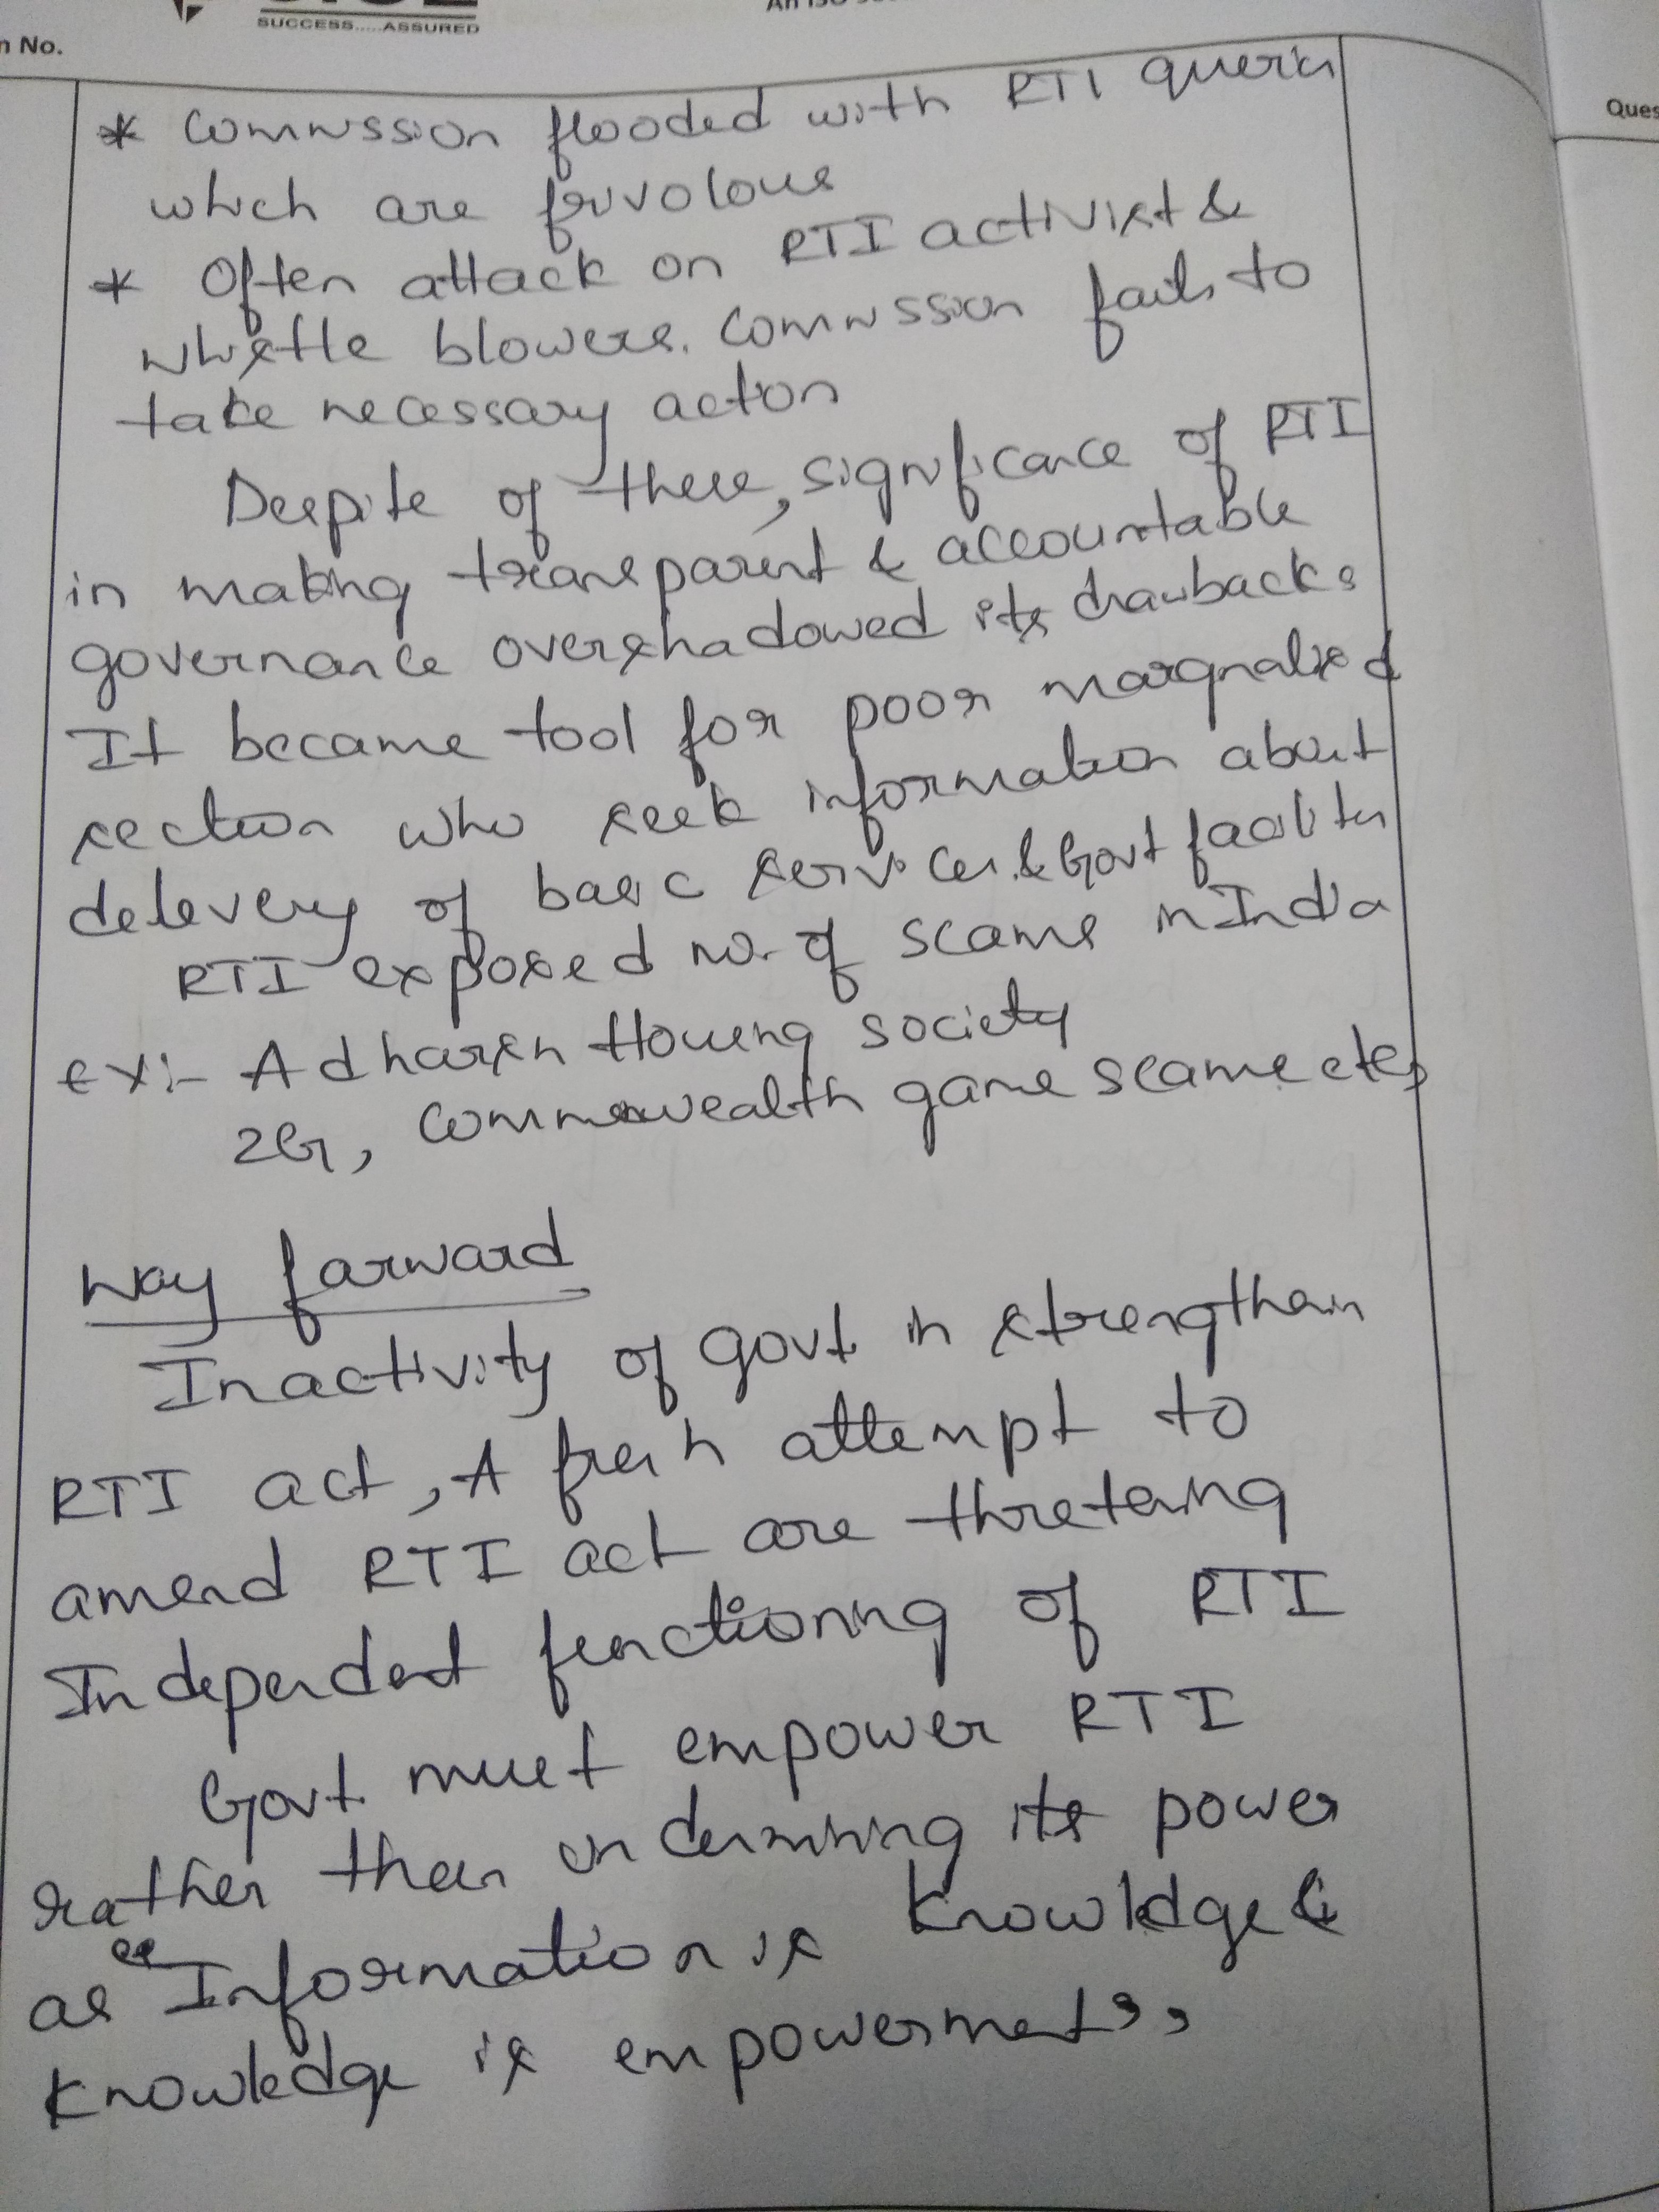 SUCCESS.....ASSURED
An ISO
n No.
Ques
* Commission flooded with RTI queries
which are frivolous
* Often attack on RTI activist &
whistle blowers. Commission fails to
take necessary action
Despite of these, significance of RTI
in making transparent & accountable
governance overshadowed its drawbacks
It became tool for poor marginalised
section who seek information about
delevery of basic services & Govt facilities
RTI exposed no. of scams in India
ex:- Adharsh Housing society
2G, Commonwealth game scams etc,
Way forward
Inactivity of govt in strengthain
RTI act, A fresh attempt to
amend RTI act are thretening
Independent functioning of RTI
Govt. must empower RTI
rather than undermining its power
as "Information is knowldge &
knowledge is empowerment",